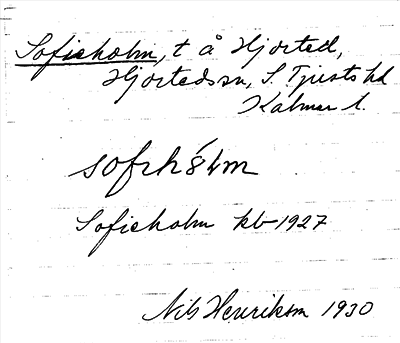 Sofieholm, t å Hjorted,
Hjortedssn, S. Tjusts hd
Kalmar l.
sofihólm
Sofieholm kb 1927
Nils Henrikson 1930